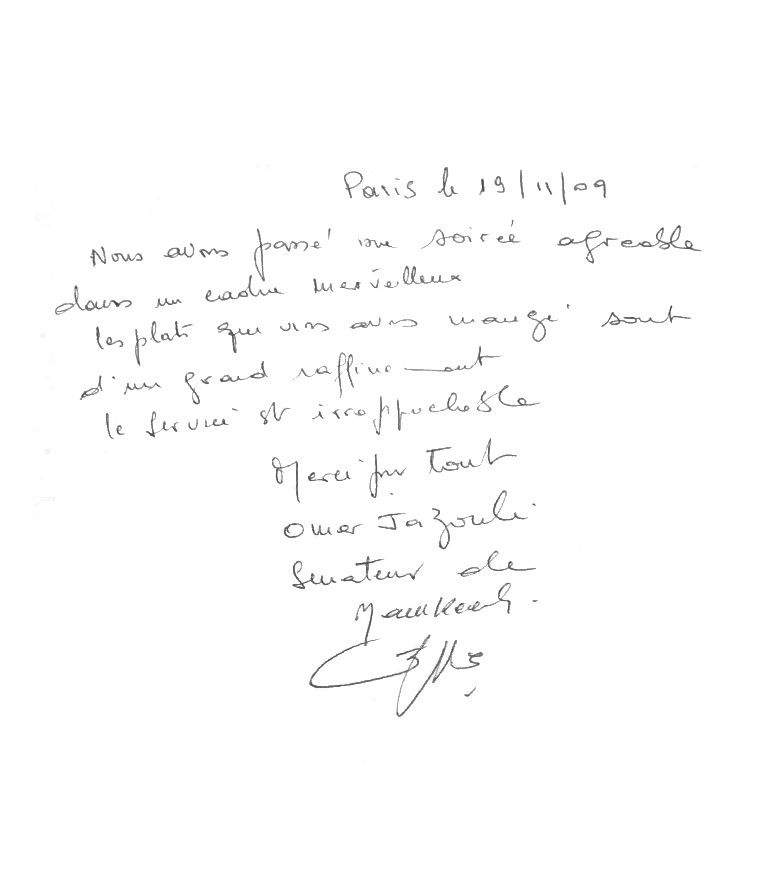 Paris le 19/11/09
Nous avons passé une soireé agreable
dans un cadre merveilleux
les plats que nous avons mangé sont
d'un grand raffinement
le service est irreppochable
Merci pour Tout
Omar Jazouli
Senateur de
Marrakech.